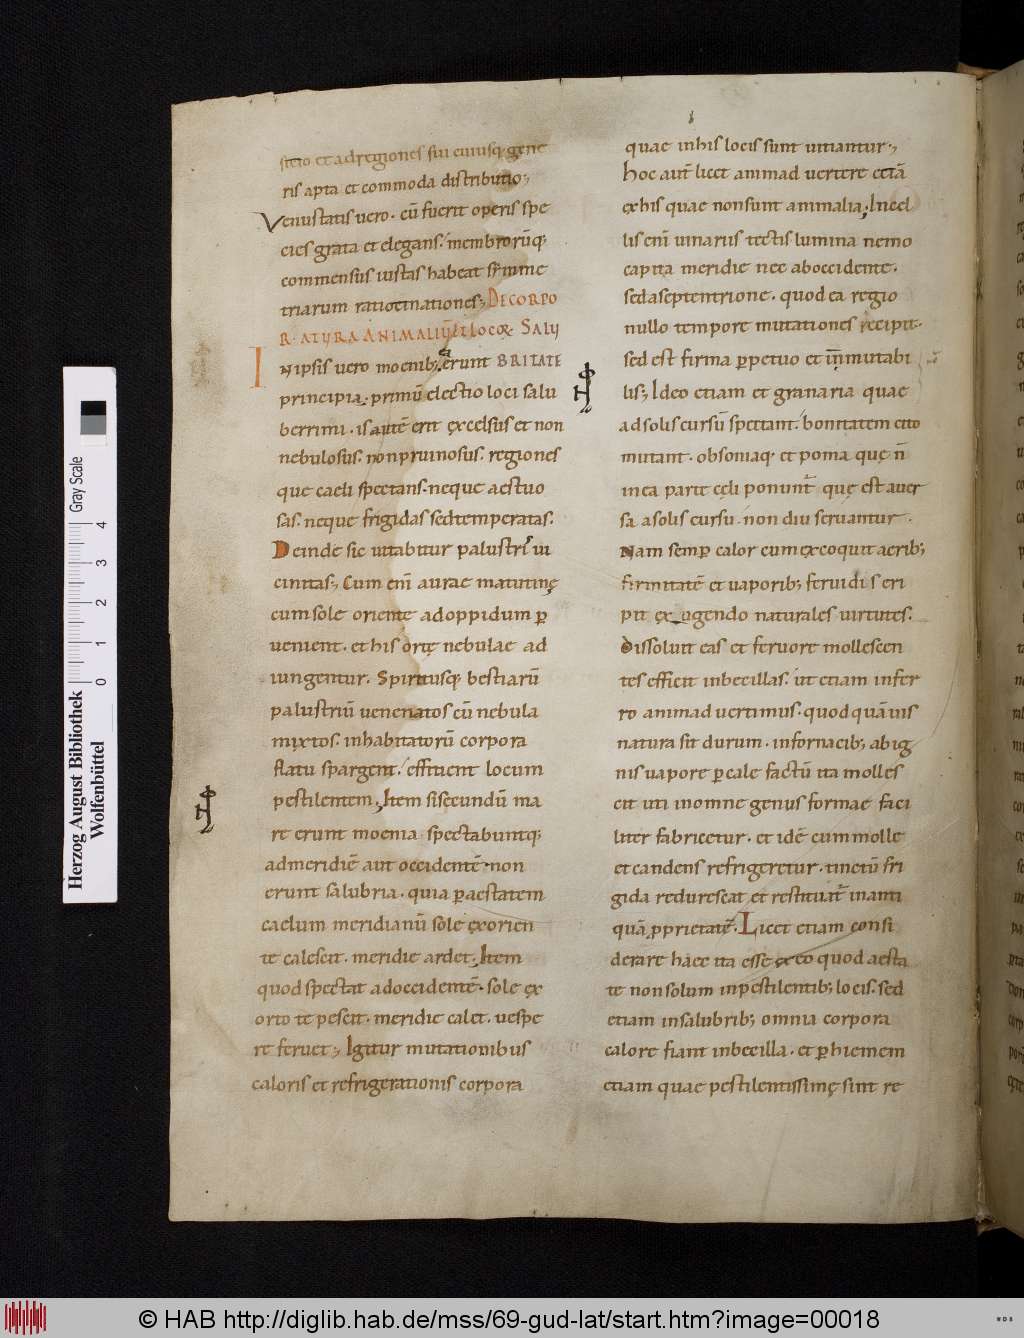 sitio et ad regiones sui cuiusq; gene
ris apta et commoda distributio;
Venustatis uero. cū fuerit operis spe
cies grata et elegans. membrorūq;
commensus iustas habeat symme
triarum ratiocinationes; DE CORPO
R. ATURA ANIMALIŪ ET LOCOꝜ SALU
INipsis uero moenib; erunt BRITATE
principia. primū electio loci salu
berrimi. is autē erit excelsus et non
nebulosus. non pruinosus. regiones
que caeli spectans. neque aestuo
sas. neque frigidas sed temperatas.
Deinde sic uitabitur palustri ui
cinitas; Cum enī aurae matutinę
cum sole oriente ad oppidum ꝑ
uenient. et his ortę nebulae ad
iungentur. Spiritusq; bestiarū
palustriū uenenatos cū nebula
mixtos. inhabitatorū corpora
flatu spargent. efficient locum
pestilentem; Item si secundū ma
re erunt moenia spectabuntq;
ad meridiē aut occidentē. non
erunt salubria. quia ꝑ aestatem
caelum meridianū sole exorien
te calescit. meridie ardet; Item
quod spectat ad occidentē. sole ex
orto tepescit. meridie calet. uespe
re feruet; Igitur mutationibus
caloris et refrigerationis corpora
quae in his locis sunt uitiantur;
hoc aut̄ licet animaduertere etiā
ex his quae non sunt animalia; In cel
lis enī uinariis tectis lumina nemo
capita meridie nec ab occidente.
sed a septentrione. quod ea regio
nullo tempore mutationes recipit.
sed est firma ꝑpetuo et inmutabi
lis; Ideo etiam et granaria quae
ad solis cursū spectant. bonitatem cito
mutant. obsoniaq; et poma quę n̄
in ea parte cęli ponunt̄ quę est auer
sa a solis cursu. non diu seruantur.
Nam semꝑ calor cum excoquit aerib;
firmitatē et uaporib; feruidis eri
pit exugendo naturales uirtutes.
Dissoluit eas et feruore mollescen
tes efficit inbecillas. ut etiam in fer
ro animaduertimus. quod quāuis
natura sit durum. in fornacib; ab ig
nis uapore ꝑcalefactū ita molles
cit uti in omne genus formae faci
liter fabricetur. et idē cum molle
et candens refrigeretur. tinctū fri
gida redurescat et restituat̄ in anti
quā ꝓprietatē. Licet etiam consi
derare haec ita esse ex eo quod aesta
te non solum in pestilentib; locis. sed
etiam in salubrib; omnia corpora
calore fiant inbecilla. et ꝑ hiemem
etiam quae pestilentissimę sint re
Gray Scale
0 1 2 3 4
Herzog August Bibliothek
Wolfenbüttel
© HAB http://diglib.hab.de/mss/69-gud-lat/start.htm?image=00018